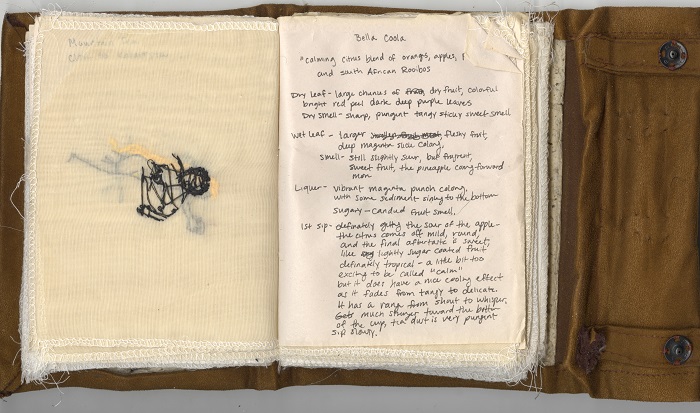 Bella Coola
"calming citrus blend of orange, apples,
and south African Rooibos
Dry Leaf - large chunks of dry fruit, colorful
bright red peel dark deep purple leaves
Dry smell - sharp, pungent tangy sticky sweet smell
Wet Leaf - larger fleshy fruit,
deep maginta slide colong.
Smell - still slightly sour, but fragrent,
sweet fruit, the pineapple comg forward
more
Liquer - vibrant maginta punch colong.
with some sediment sinkg to the bottom
sugary - candied fruit smell.
1st sip - definately gettg the sour of the apple -
the citrus comes off mild, round,
and the final aftertaste is sweet,
like lightly sugar coated fruit
definately tropical - a little bit too
exciting to be called "calm"
but it does have a nice cooling effect
as it fades from tangy to delicate.
It has a range from shout to whisper.
Gets much stronger toward the bottom
of the cup, tea dust is very pungent
sip slowly.